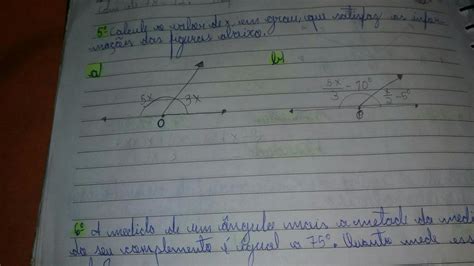 5º Calcule o valor de x em grau que satisfaz as infor
mações das figuras abaixo.
a)
b)
5x
3x
O
5x/3 - 20°
x/2 - 5°
6º A medida de um ângulo mais a metade da medi
da do seu complemento é igual a 75°. Quanto mede ess